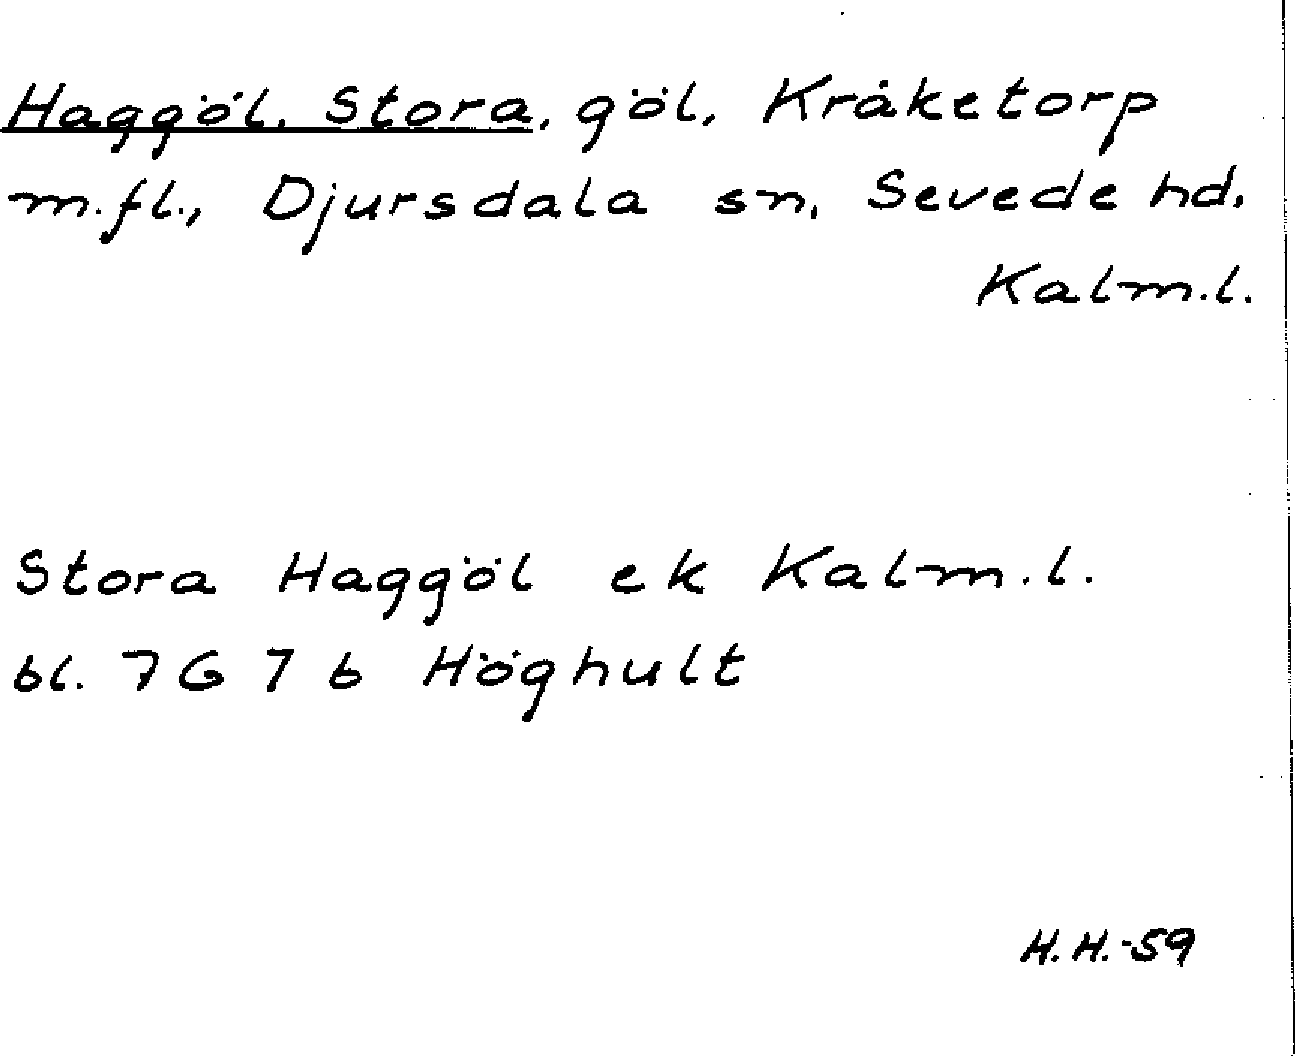 Haggöl, Stora, göl, Kråketorp
m.fl., Djursdala sn, Sevede hd,
Kalm.l.
Stora Haggöl ek Kalm.l.
bl. 7G 7 b Höghult
H.H.-59